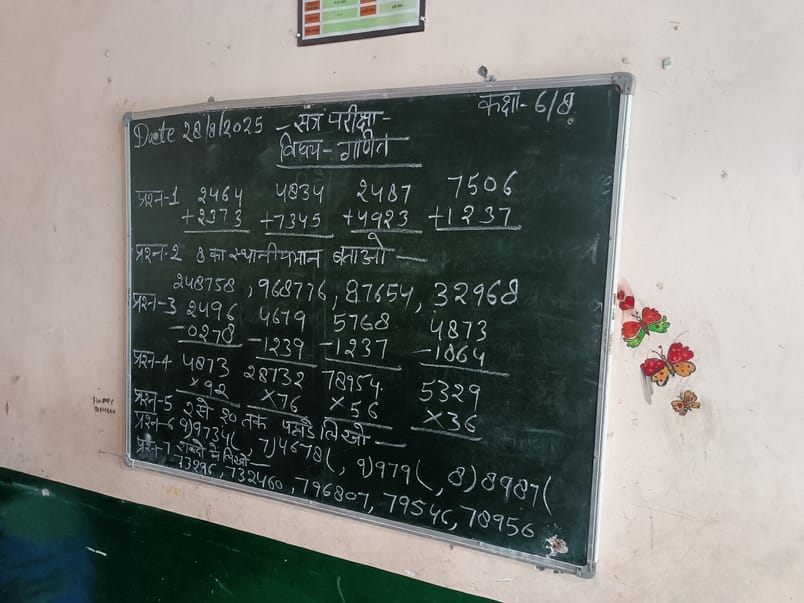 Date 28/8/2025 - सत्र परीक्षा - कक्षा - 6/8
विषय - गणित
प्रश्न-1 2464 4834 2487 7506
+2373 +7345 +4923 +1237
प्रश्न-2 8 का स्थानीयमान बताओ —
248758, 968776, 87654, 32968
प्रश्न-3 2496 4679 5768 4873
-0278 -1239 -1237 -1064
प्रश्न-4 4873 28732 78954 5329
×92 ×76 ×56 ×36
प्रश्न-5 2 से 20 तक पहाड़े लिखो —
प्रश्न-6 9)9734( , 7)4678( , 9)979( , 8)8987(
प्रश्न-7 शब्दो में लिखो —
73296, 732460, 796807, 79546, 78956